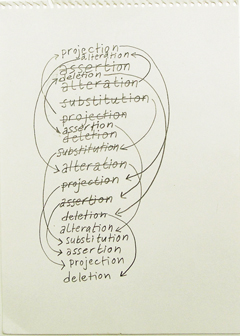 projection
alteration
assertion
deletion
alteration
substitution
projection
assertion
deletion
substitution
alteration
projection
assertion
deletion
alteration
substitution
assertion
projection
deletion